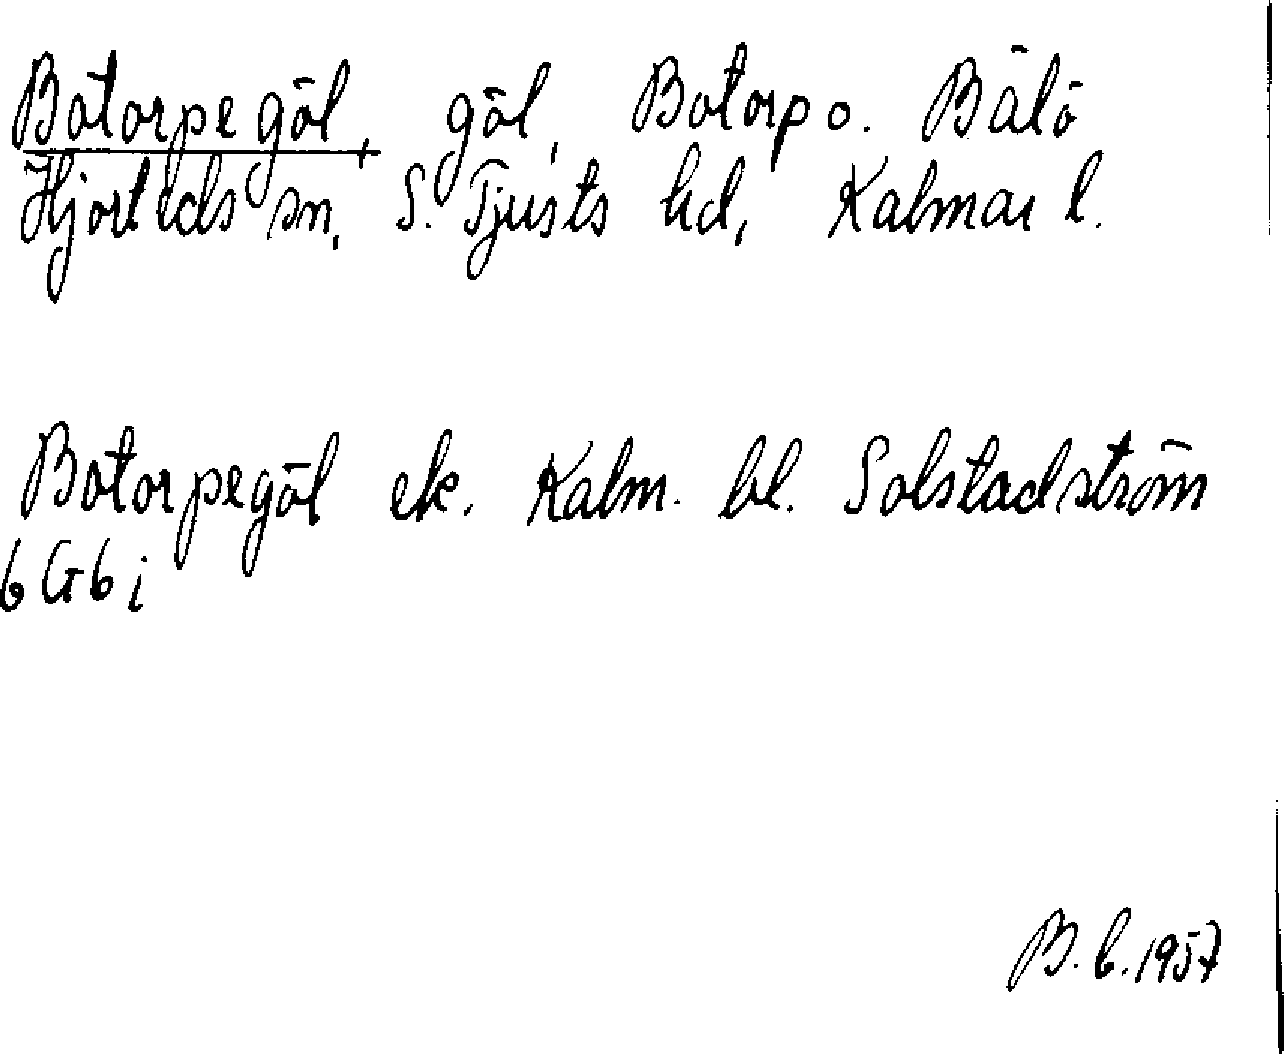 Botorpegöl, göl, Botorp o. Bälö
Hjorteds sn, S. Tjusts hd, Kalmar l.
Botorpegöl ek. Kalm. bl. Solstadström
6G6i
B.b.1957